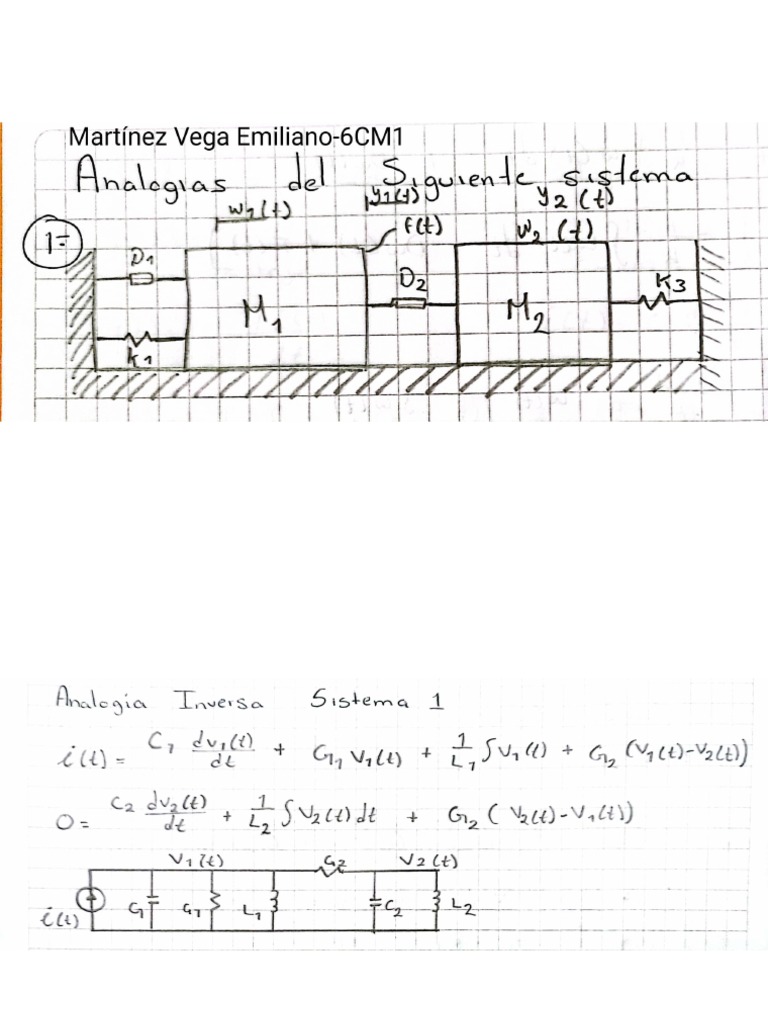 Martínez Vega Emiliano-6CM1
Analogias del Siguiente sistema
w1(t) y1(t) y2(t)
1=
f(t) w2(t)
D1 D2 K3
M1 M2
K1
Analogía Inversa Sistema 1
i(t) = C1 dv1(t)/dt + G1 V1(t) + 1/L1 ∫V1(t) + G2 (V1(t)-V2(t))
0 = C2 dv2(t)/dt + 1/L2 ∫V2(t)dt + G2 (V2(t)-V1(t))
V1(t) G2 V2(t)
i(t) C1 G1 L1 C2 L2